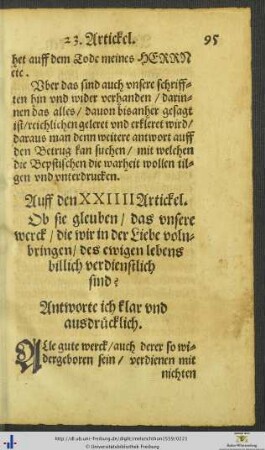 23. Artickel. 95
het auff dem Tode meines HERRN
etc.
Vber das sind auch vnsere schriff-
ten hin vnd wider verhanden / darin-
nen das alles / dauon bisanher gesagt
ist / reichlichen geleret vnd erkleret wird /
daraus man denn weitere antwort auff
den Betrug kan suchen / mit welchen
die Bepstischen die warheit wollen til-
gen vnd vnterdrucken.
Auff den XXIIII Artickel.
Ob sie gleuben / das vnsere
werck / die wir in der Liebe voln-
bringen / des ewigen lebens
billich verdienstlich
sind?
Antworte ich klar vnd
ausdrücklich.
Alle gute werck / auch derer so wi-
dergeboren sein / verdienen mit
nichten
© Universitätsbibliothek Freiburg
Baden-Württemberg